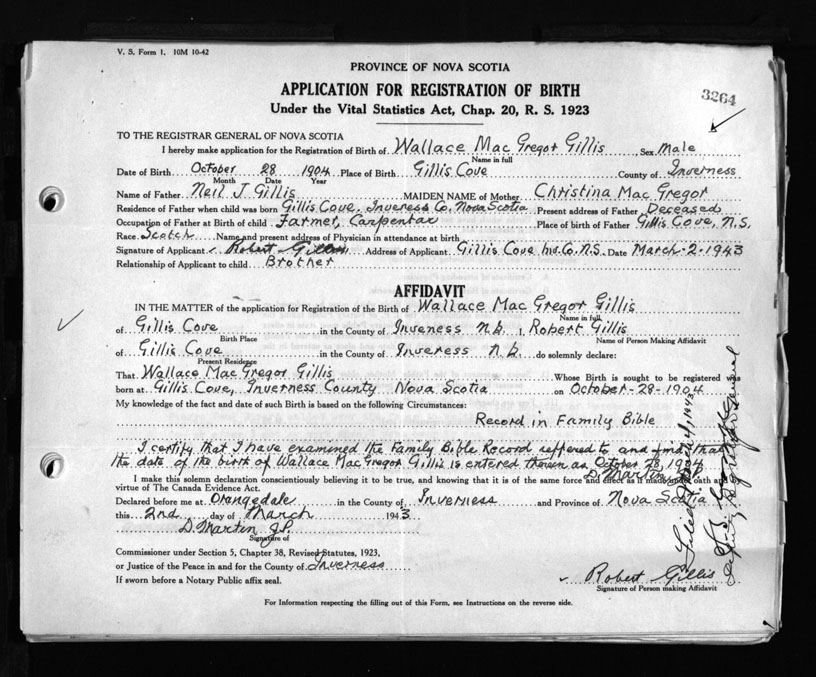 V. S. Form 1. 10M 10-42
PROVINCE OF NOVA SCOTIA
APPLICATION FOR REGISTRATION OF BIRTH
3264
Under the Vital Statistics Act, Chap. 20, R. S. 1923
TO THE REGISTRAR GENERAL OF NOVA SCOTIA
I hereby make application for the Registration of Birth of Wallace Mac Gregor Gillis Sex Male
Name in full
Date of Birth October 28 1904 Place of Birth Gillis Cove County of Inverness
Month Date Year
Name of Father Neil J Gillis MAIDEN NAME of Mother Christina Mac Gregor
Residence of Father when child was born Gillis Cove. Inverness Co. Nova Scotia Present address of Father Deceased
Occupation of Father at Birth of child Farmer, Carpentar Place of birth of Father Gillis Cove, N.S.
Race Scotch Name and present address of Physician in attendance at birth
Signature of Applicant Robert Gillis Address of Applicant Gillis Cove Inv. Co. N.S. Date March-2-1943
Relationship of Applicant to child Brother
AFFIDAVIT
IN THE MATTER of the application for Registration of the Birth of Wallace Mac Gregor Gillis
Name in full
of Gillis Cove in the County of Inveness I, Robert Gillis
Birth Place Name of Person Making Affidavit
of Gillis Cove in the County of Inveress do solemnly declare:
Present Residence
That Wallace Mac Gregor Gillis Whose Birth is sought to be registered was
born at Gillis Cove, Inverness County Nova Scotia on October-28-1904
My knowledge of the fact and date of such Birth is based on the following Circumstances:
Record in Family Bible
I certify that I have examined the Family Bible Record reffered to and find that
the date of the birth of Wallace Mac Gregor Gillis is entered thereon as October 28, 1904
D. Martin J.P.
I make this solemn declaration conscientiously believing it to be true, and knowing that it is of the same force and effect as if made under oath and
virtue of The Canada Evidence Act.
Declared before me at Orangedale in the County of Inverness and Province of Nova Scotia
this 2nd day of March 1943
D. Martin J.P.
Signature of
Commissioner under Section 5, Chapter 38, Revised Statutes, 1923,
or Justice of the Peace in and for the County of Inverness
If sworn before a Notary Public affix seal.
Robert Gillis
Signature of Person making Affidavit
For Information respecting the filling out of this Form, see Instructions on the reverse side.
Filed 1943